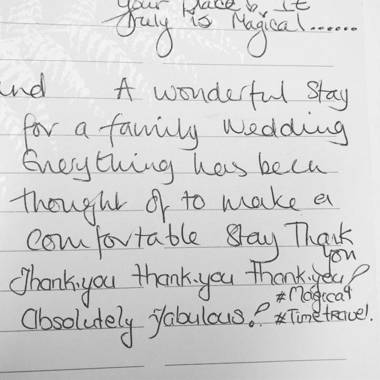 your place & it
truly is Magical......
and A wonderful Stay
for a family wedding
Everything has been
thought of to make a
comfortable Stay Thank
you
Thank.you thank.you thank.you!
#Magical
Absolutely Fabulous! #Timetravel.